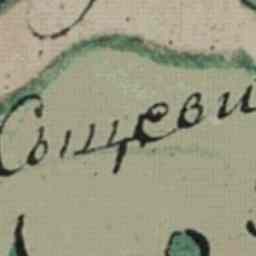 Сыщеви